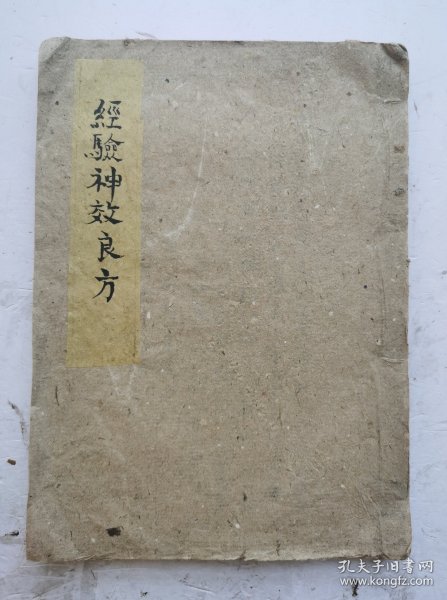 經驗神效良方
孔夫子旧书网
www.kongfz.com